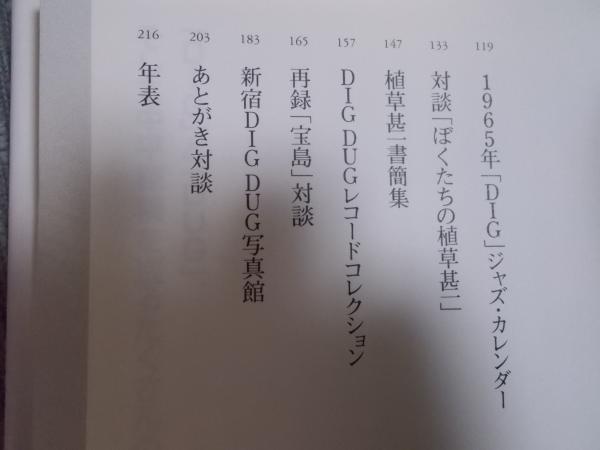 119
1965年「DIG」ジャズ・カレンダー
133
対談「ぼくたちの植草甚一」
147
植草甚一書簡集
157
DIG DUGレコードコレクション
165
再録「宝島」対談
183
新宿DIG DUG写真館
203
あとがき対談
216
年表